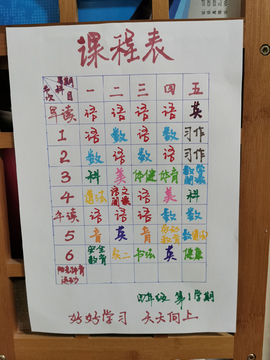 课程表
星期 一 二 三 四 五
节次 科目
早读 语 语 语 语 英
1 语 数 语 数 习作
2 数 语 数 数 习作
3 科 英 体健 体育 数学阅读
4 道法 语文阅读 语 英 科
午读 语 语 语 数 数
5 音 英 音 劳动教育 道法
6 安全教育 综二 书法 英 健康
阳光体育活动
四年级 第1学期
好好学习 天天向上